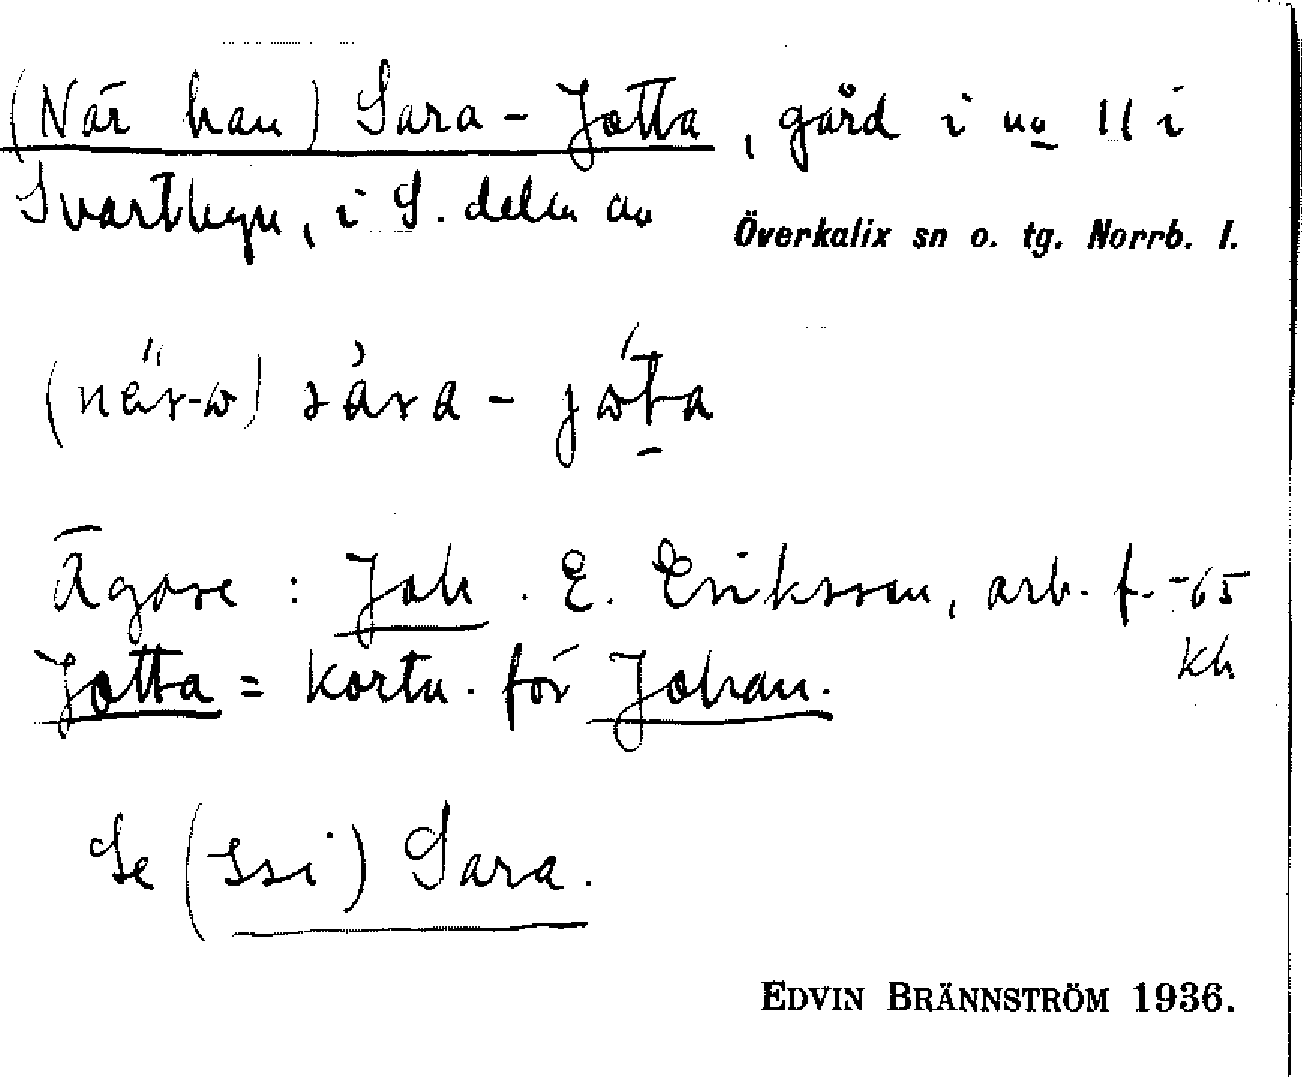 (När han) Sara-Jotta, gård i no 11 i
Svartbyn, i S. delen av Överkalix sn o. tg. Norrb. l.
sára-
Ägare: Joh. E. Eriksson, arb. f. -65
kh
Jotta = kortn. för Johan.
Se (Ssi) Sara.
EDVIN BRÄNNSTRÖM 1936.